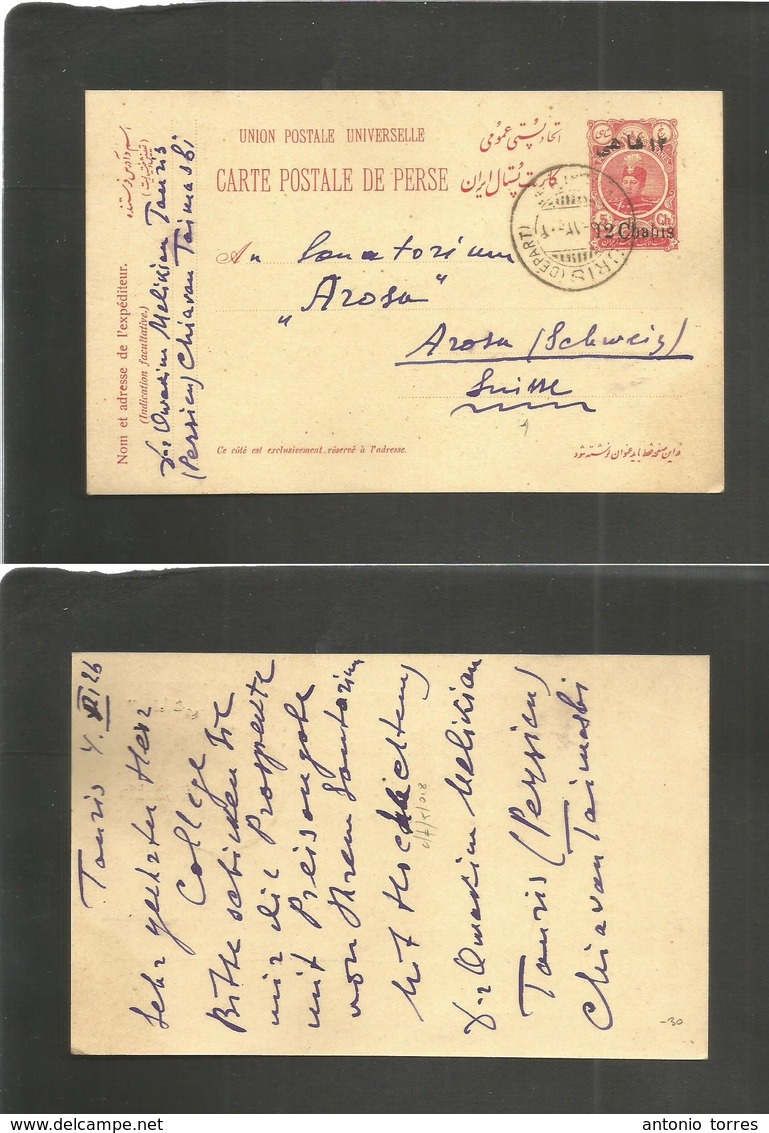 UNION POSTALE UNIVERSELLE
اتحاد پستی عمومی
CARTE POSTALE DE PERSE
کارت پستال ایران
5 Ch
12 Chahis
(DEPART)
An Sanatorium
„Arosa"
Arosa (Schweiz)
Suisse
Ce côté est exclusivement réservé à l'adresse.
در این صفحه فقط باید عنوان نوشته شود
Nom et adresse de l'expéditeur.
(Indication facultative.)
Dr Owakim Melikian Tauris
(Persien) Chiavan Taimasbi
Tauris 4. VI 26
Sehr geehrter Herr
College
Bitte schicken Sie
mir die Prospekte
mit Preisangabe
von Ihrem Sanatorium
Mit Hochachtung
Dr Owakim Melikian
Tauris (Persien)
Chiavan Taimasbi
-30
www.delcampe.net
antonio torres